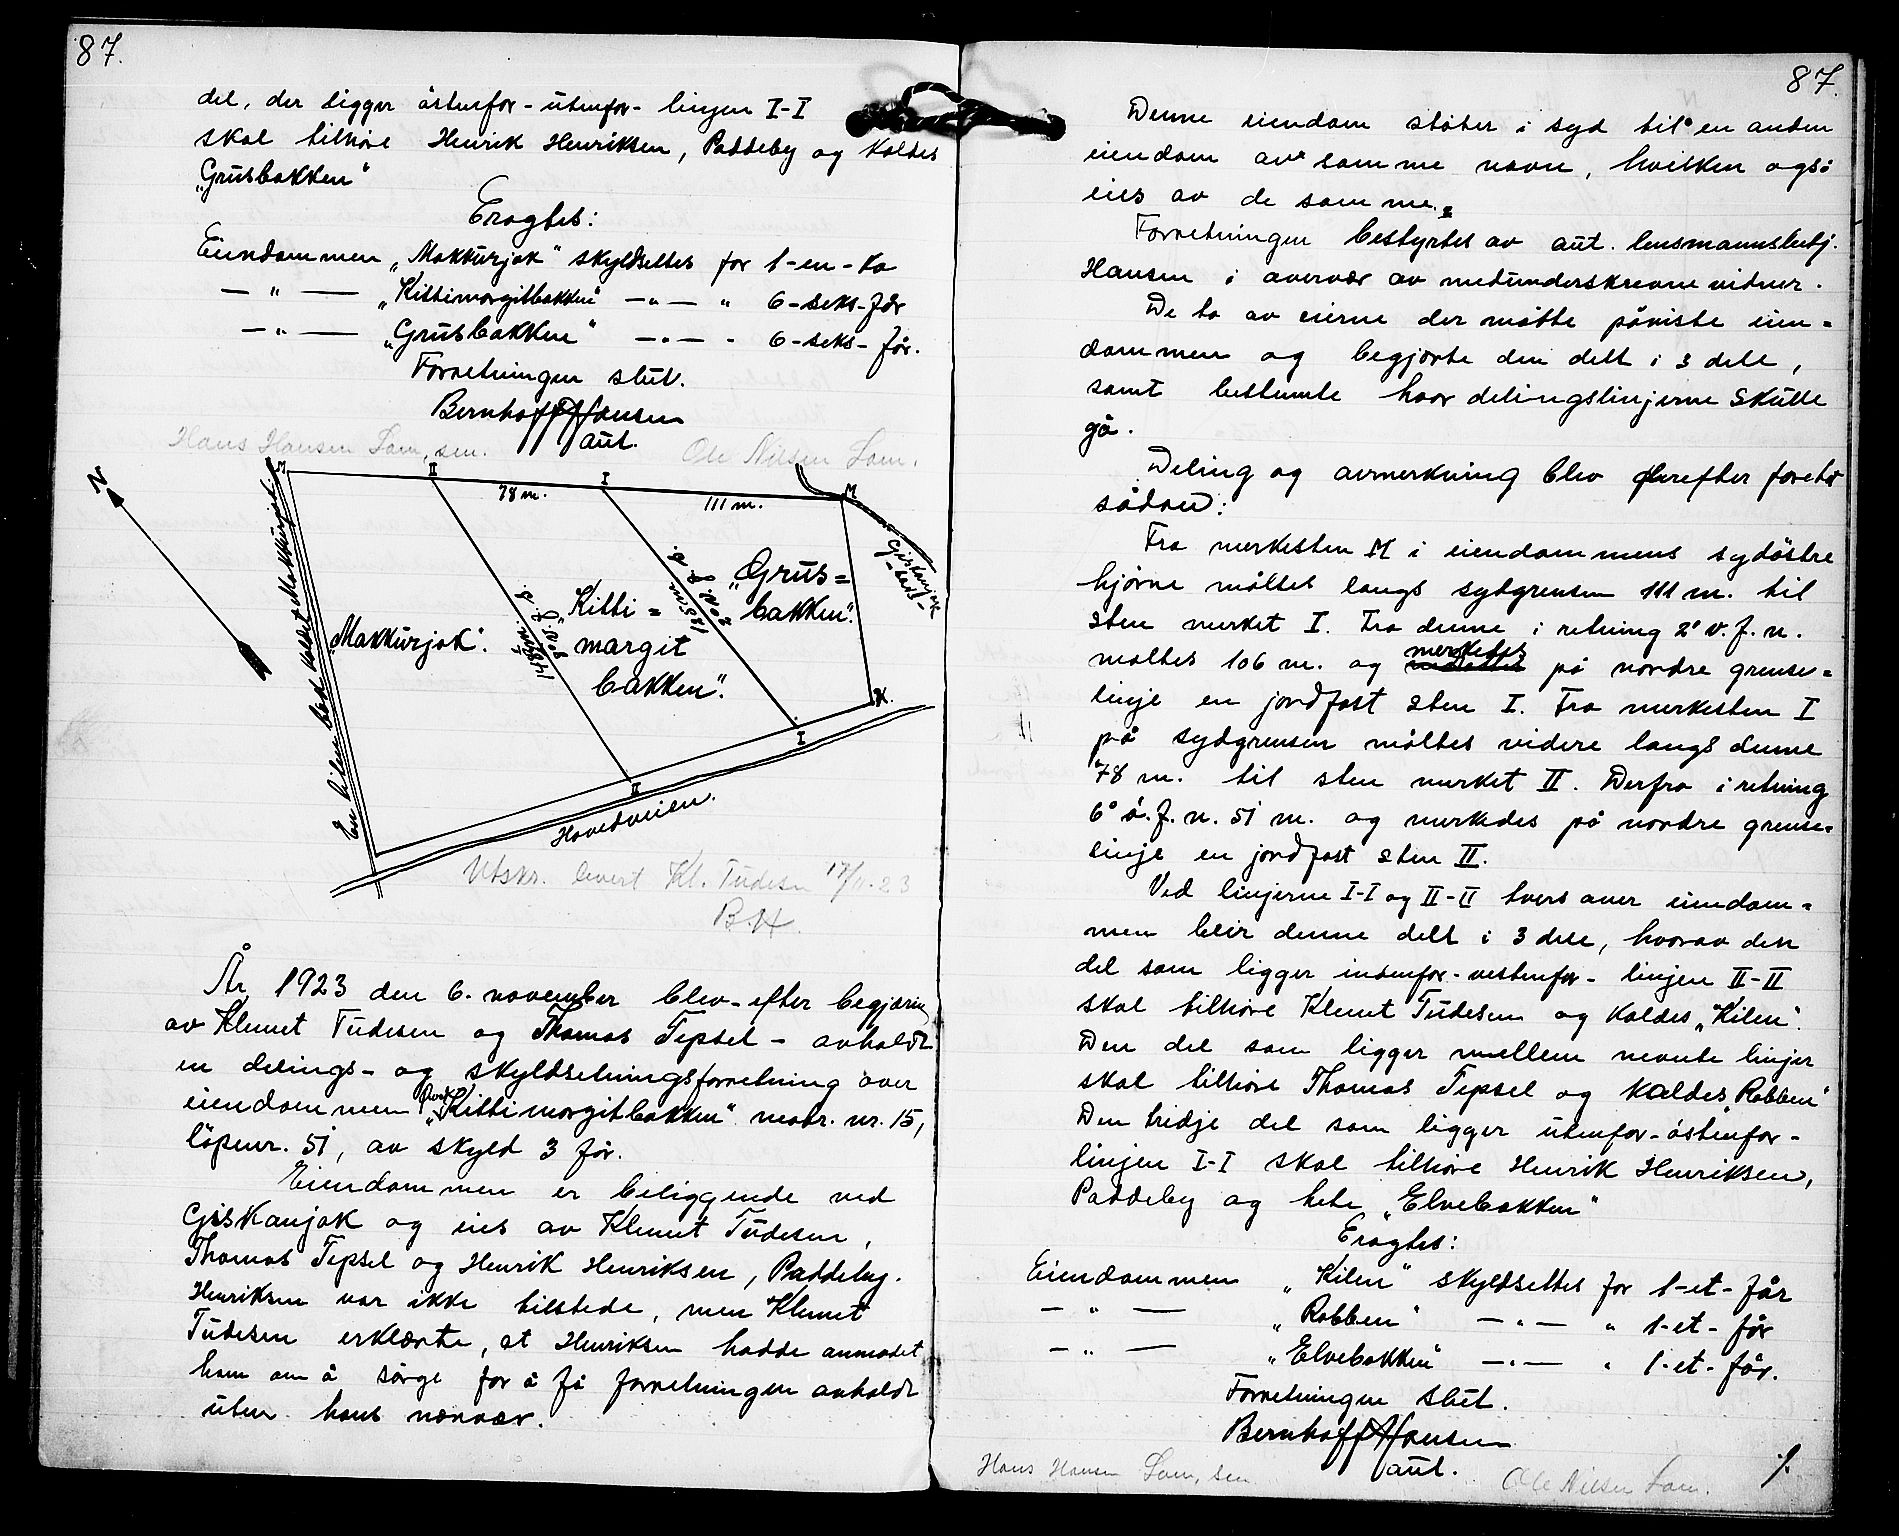 87.
del, der ligger östenfor - utenfor - linjen I-I
skal tilhöre Henrik Henriksen, Paddeby og kaldes
„Grusbakken"
Eragtes:
Eiendommen „Makkurjok" skyldsettes for 1-en-ko
— " — „Kittimargitbakken" — " — " 6-seks-får
— " — „Grusbakken" — " — " 6-seks-får.
Forretningen slut.
Bernhoff Hansen
aut.
Hans Hansen Som, sen. Ole Nilsen Som.
N
M II I M
78 m. 111 m.
En liten bæk kaldet Makkurjok
Giskanjok
"Makkurjok".
"Kitti=
margit
bakken".
"Grus=
bakken".
N.
I
II
Hovedveien.
Utskr. levert Kl. Tudesen 17/11.23
B.H.
År 1923 den 6. november blev - efter begjæring
av Klemet Tudesen og Thomas Tepsel - avholdt
en delings- og skyldsetningsforretning over
eiendommen „Kittimargitbakken" matr. nr. 15,
löpenr. 51, av skyld 3 får.
Eiendommen er beliggende ved
Giskanjok og eies av Klemet Tudesen,
Thomas Tepsel og Henrik Henriksen, Paddeby.
Henriksen var ikke tilstede, men Klemet
Tudesen erklærte, at Henriksen hadde anmodet
ham om å sörge for å få forretningen avholdt
uten hans nærvær.
87.
Denne eiendom stöter i syd til en anden
eiendom av samme navn, hvilken også
eies av de samme.
Forretningen bestyrtes av aut. lensmannsbetj.
Hansen i overvær av medunderskrevne vidner.
De to av eierne der mötte påviste eien=
dommen og begjærte den delt i 3 dele,
samt bestemte hvor delingslinjerne skulle
gå.
Deling og avmerkning blev derefter foretat
sådan:
Fra merkesten M i eiendommens sydöstre
hjörne måltes langs sydgrensen 111 m. til
sten merket I. Fra denne i retning 2° v.f.n.
måltes 106 m. og merkedes på nordre grense=
linje en jordfast sten I. Fra merkesten I
på sydgrensen måltes videre langs denne
78 m. til sten merket II. Derfra i retning
6° ö.f.n. 51 m. og merkedes på nordre grense=
linje en jordfast sten II.
Ved linjerne I-I og II-II tvers over eiendom=
men blir denne delt i 3 dele, hvorav den
del som ligger indenfor - vestenfor - linjen II-II
skal tilhöre Klemet Tudesen og kaldes „Kilen".
Den del som ligger mellem nevnte linjer
skal tilhöre Thomas Tepsel og kaldes „Robben"
Den tredje del som ligger utenfor - östenfor -
linjen I-I skal tilhöre Henrik Henriksen,
Paddeby og hete „Elvebakken"
Eragtes:
Eiendommen „Kilen" skyldsettes for 1-et-får
— " — „Robben" — " — " 1-et-får
— " — „Elvebakken" — " — " 1-et-får.
Forretningen slut.
Bernhoff Hansen
aut.
Hans Hansen Som, sen Ole Nilsen Som.